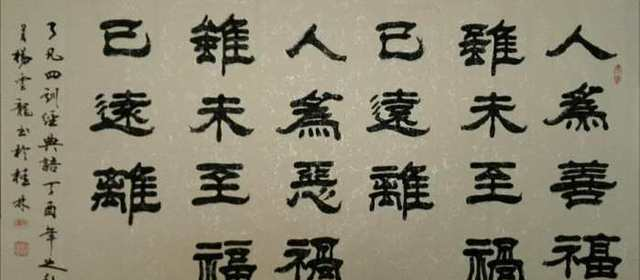 人為善福
雖未至禍
已遠離
人為惡禍
雖未至福
已遠離
了凡四訓經典語丁酉年之秋
月楊雲龍書於桂林